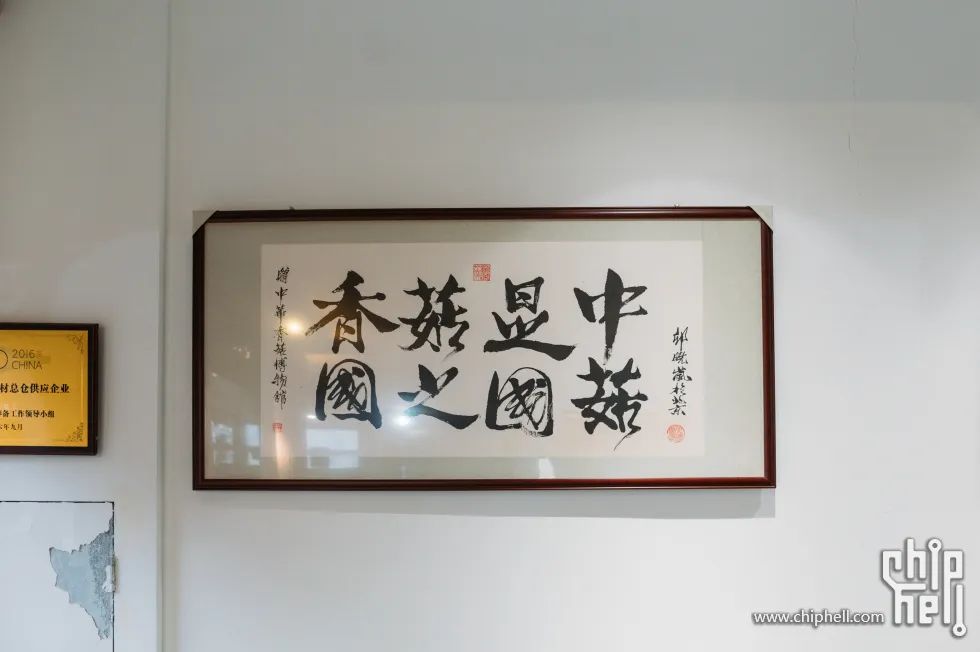 2016
CHINA
材总仓供应企业
备工作领导小组
年九月
贈中華香菇博物館
香菇是中
國之國菇
於北京
www.chiphell.com
chip
hell